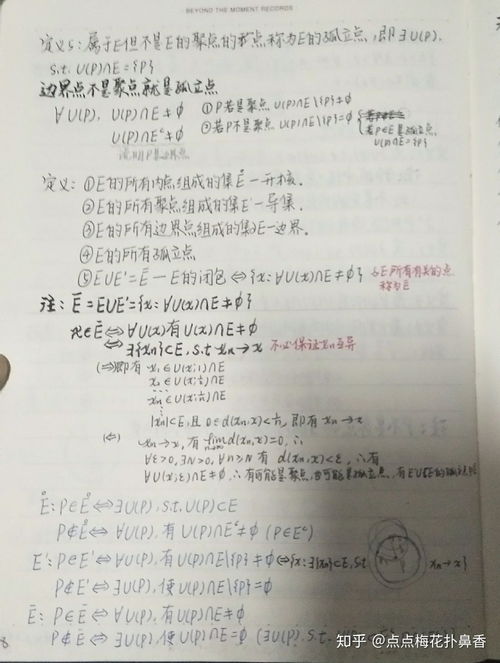 BEYOND THE MOMENT RECORDS
定义5: 属于E但不是E的聚点的点,称为E的孤立点,即∃U(P).
s.t. U(P)∩E={P}
边界点不是聚点就是孤立点
∀U(P), U(P)∩E≠∅ ①P若是聚点 U(P)∩E\{P}≠∅
U(P)∩Eᶜ≠∅ ②若P不是聚点 U(P)∩E\{P}=∅ { 若P∈E 是孤立点
U(P)∩E={P}
定义: ①E的所有内点组成的集E̊—开核.
②E的所有聚点组成的集E'—导集.
③E的所有边界点组成的集∂E—边界.
④E的所有孤立点
⑤E∪E'=Ē—E的闭包⇔{x: ∀U(x)∩E≠∅} 与E所有有关的点
称为Ē
注: Ē=E∪E'={x: ∀U(x)∩E≠∅}
x∈Ē⇔∀U(x)有U(x)∩E≠∅
⇔∃{xn}⊂E, s.t xn→x 不必保证xn互异
(⇒)即有 x₁∈U(x;1)∩E
x₂∈U(x;½)∩E
⋯
xn∈U(x;1/n)∩E
⋮
{xn}⊂E,且 0≤d(xn,x)<1/n, 即有 xn→x
(⇐) xn→x,有 lim d(xn,x)=0, ∴
n→∞
∀ε>0,∃N>0,∀n≥N 有 d(xn,x)<ε, ∴有
∀U(x;ε)∩E≠∅, ∴有可能是聚点,也可能是孤立点,有E∪E'
E̊: P∈E̊⇔∃U(P), s.t. U(P)⊂E
P∉E̊⇔∀U(P),有U(P)∩Eᶜ≠∅ (P∈Eᶜ)
E': P∈E'⇔∀U(P),有U(P)∩E\{P}≠∅⇔{x: ∃{xn}⊂E, s.t xn→x}
P∉E'⇔∃U(P),使U(P)∩E\{P}=∅
Ē: P∈Ē⇔∀U(P),有U(P)∩E≠∅
P∉Ē⇔∃U(P),使U(P)∩E=∅ (∃U(P). s.t.
8
知乎 @点点梅花扑鼻香